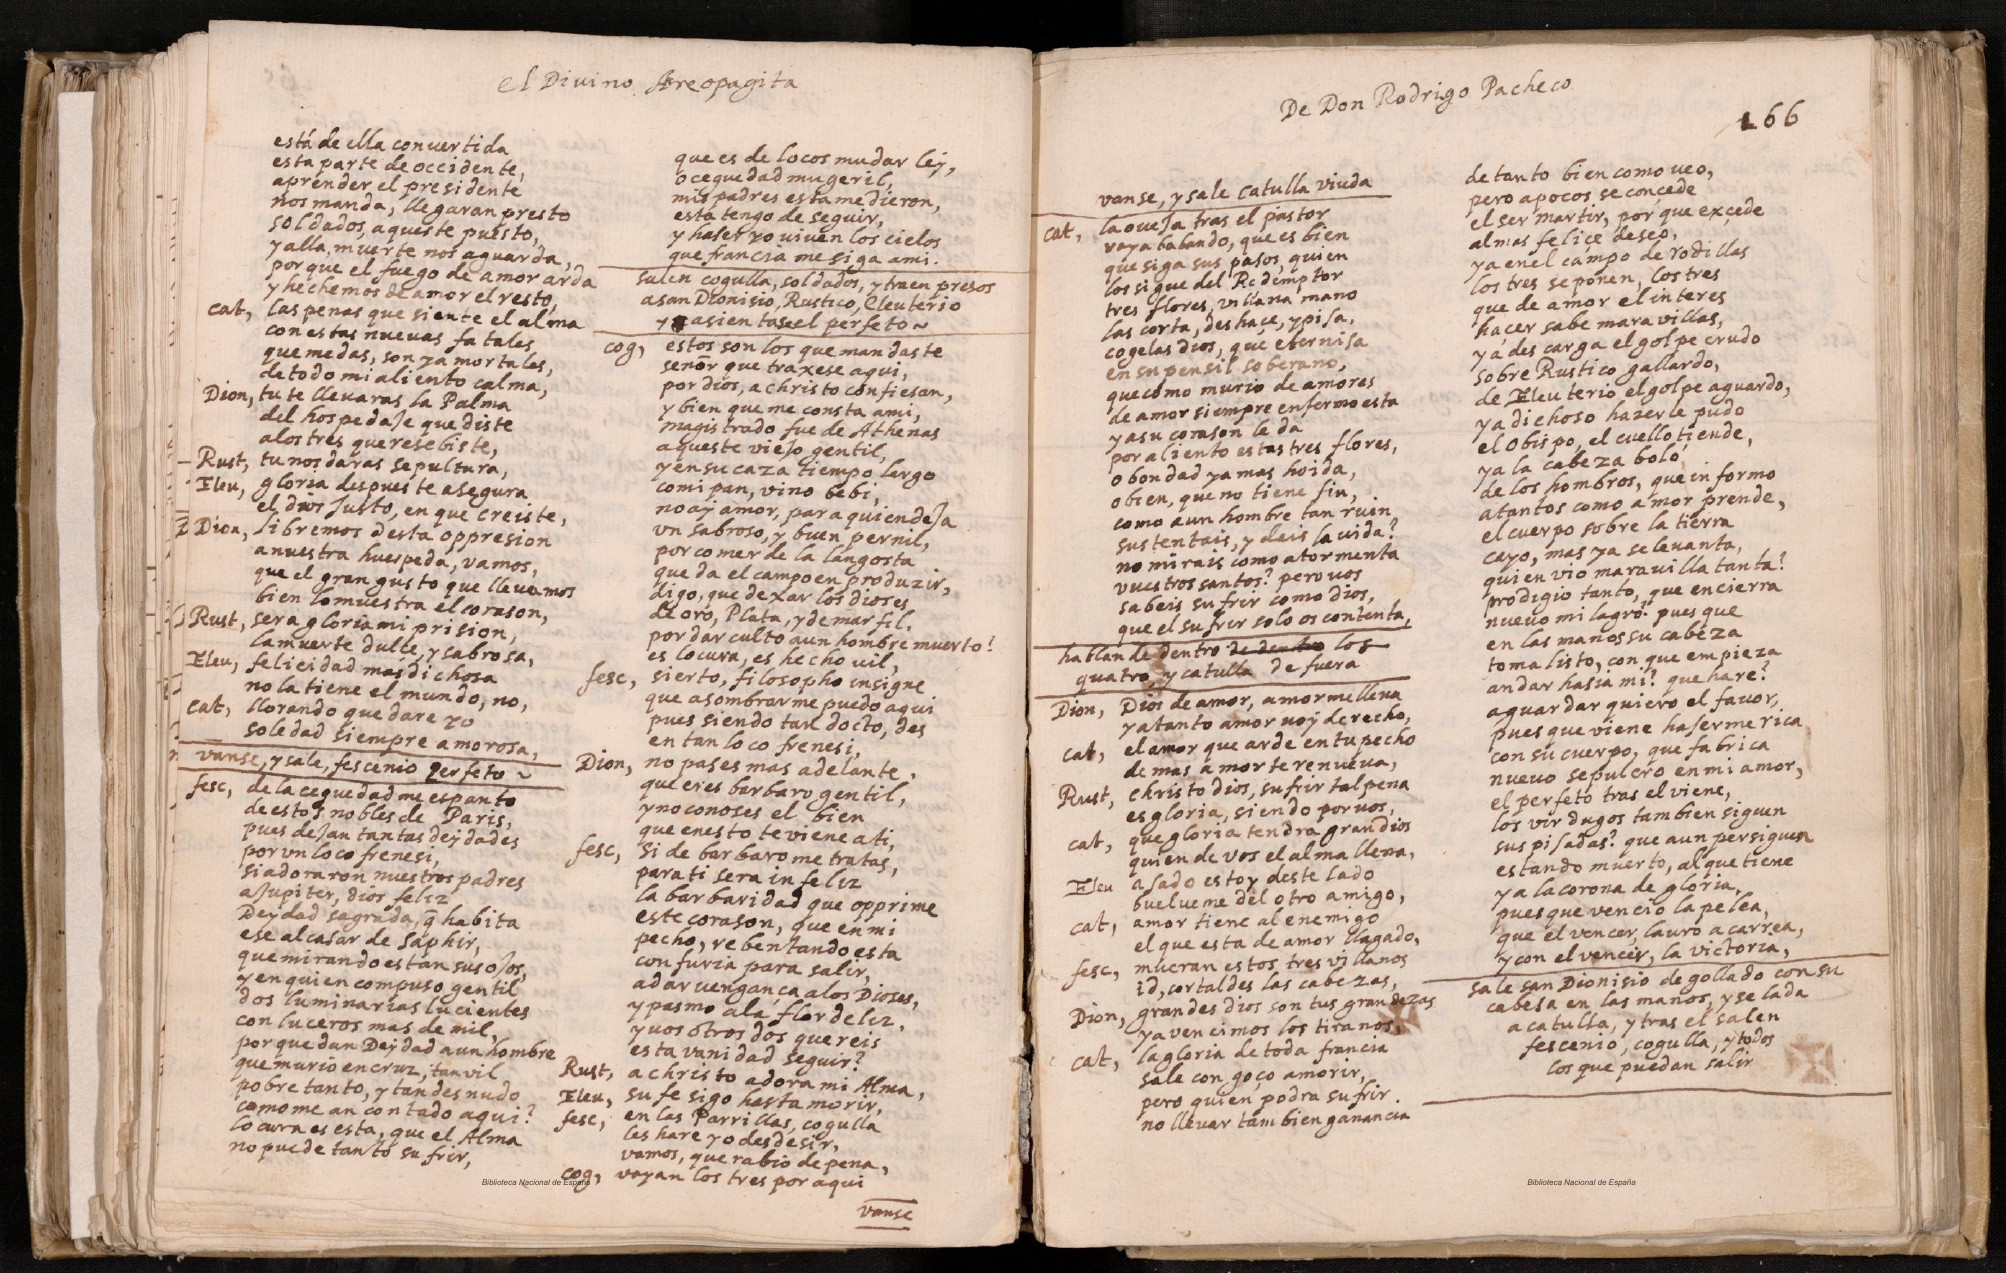 El Divino Areopagita
está de ella convertida
esta parte de occidente,
aprender el presidente
nos manda, llegaran presto
soldados, aqueste puesto,
y alla, muerte nos aguarda,
porque el fuego de amor arda
y hechemos de amor el resto,
cat, las penas que siente el alma
con estas nuevas fatales
que me das, son ya mortales,
de todo mi aliento calma,
Dion, tu te llevaras la Palma
del hospedaje que diste
alos tres que resebiste,
Rust, tu nos daras sepultura,
Eleu, gloria despues te asegura
el dios Justo, en que creiste,
Dion, libremos desta oppresion
anuestra huespeda, vamos,
que el gran gusto que llevamos
bien lo muestra el corason,
Rust, sera gloria mi prision,
la muerte dulce, y sabrosa,
Eleu, felicidad mas dichosa
no la tiene el mundo, no,
cat, llorando quedare yo
soledad siempre amorosa,
vanse, y sale, fescenio Perfeto ~
fesc, de la ceguedad me espanto
de estos nobles de Paris,
pues dejan tantas deydades
por vn loco frenesi,
si adoraron nuestros padres
a Jupiter, dios feliz
Deydad sagrada, q̃ habita
ese alcasar de saphir,
que mirando estan sus ojos,
y en quien compuso gentil
dos luminarias lucientes
con luceros mas de mil,
por que dan Deydad a un hombre
que murio en cruz, tan vil
pobre tanto, y tan desnudo
como me an contado aqui?
locura es esta, que el Alma
no puede tanto sufrir,
que es de locos mudar ley,
o ceguedad mugeril,
mis padres esta me dieron,
esta tengo de seguir,
y haser yo viven los cielos
que francia me siga ami.
salen cogulla, soldados, y traen presos
a san Dionisio, Rustico, Eleuterio
y asientase el perfeto ~
cog, estos son los que mandaste
señor que traxese aqui,
por dios, a christo confiesan,
y bien que me consta ami,
magistrado fue de Athenas
aqueste viejo gentil,
y en su caza tiempo largo
comi pan, vino bebi,
no ay amor, para quien deja
vn sabroso, y buen pernil,
por comer de la langosta
que da el campo en produzir,
digo, que dexar los dioses
de oro, Plata, y de marfil.
por dar culto aun hombre muerto!
es locura, es hecho vil,
fesc, sierto, filosopho insigne
que asombrarme puedo aqui
pues siendo tan docto, des
en tan loco frenesi,
Dion, no pases mas adelante,
que eres barbaro gentil,
y no conoses el bien
que en esto te viene ati,
fesc, si de barbaro me tratas,
para ti sera infeliz
la barbaridad que opprime
este corason, que en mi
pecho, rebentando esta
con furia para salir,
a dar vengança alos Dioses,
y pasmo ala flor de liz.
y vos otros dos quereis
esta vanidad seguir?
Rust, a christo adora mi Alma,
Eleu, su fe sigo hasta morir,
fesc, en las Parrillas, cogulla
les hare yo desdesir,
vamos, que rabio de pena,
cog, vayan los tres por aqui
vanse
De Don Rodrigo Pacheco
166
vanse, y sale catulla viuda
cat, la oveja tras el pastor
vaya balando, que es bien
que siga sus pasos, quien
los sigue del Redemptor
tres flores, villana mano
las corta, deshaçe, y pisa,
cogelas dios, que eternisa
en su pensil soberano,
que como murio de amores
de amor siempre enfermo esta
y a su corason le da
por aliento estas tres flores,
o bondad ya mas hoida,
o bien, que no tiene fin,
como aun hombre tan ruin
sustentais, y dais la vida?
no mirais como atormenta
vuestros santos? pero vos
sabeis sufrir como dios,
que el sufrir solo os contenta,
hablan de dentro de dentro los
quatro, y catulla de fuera
Dion, Dios de amor, amor me lleva
y a tanto amor voy derecho,
cat, el amor que arde en tu pecho
de mas amor te renueva,
Rust, Christo dios, sufrir tal pena
es gloria, siendo por vos,
cat, que gloria tendra gran dios
quien de vos el alma llena,
Eleu asado estoy deste lado
buelueme del otro amigo,
cat, amor tiene al enemigo
el que esta de amor llagado,
fesc, mueran estos tres villanos
id, cortaldes las cabezas,
Dion, grandes dios son tus grandezas
ya vencimos los tiranos,
cat, la gloria de toda francia
sale con goço amorir,
pero quien podra sufrir.
no llevar tambien ganancia
de tanto bien como veo,
pero a pocos se conçede
el ser martir, por que exçede
almas felice deseo,
ya en el campo de rodillas
los tres se ponen, los tres
que de amor el interes
hacer sabe maravillas,
ya descarga el golpe crudo
sobre Rustico gallardo,
de Eleuterio el golpe aguardo,
ya dichoso hazerle pudo
el obispo, el cuello tiende,
ya la cabeza boló
de los hombros, que informo
atantos como amor prende,
el cuerpo sobre la tierra
cayo, mas ya se levanta,
quien vio maravilla tanta?
prodigio tanto, que encierra
nuevo milagro? pues que
en las manos su cabeza
toma listo, con que empieza
andar hasia mi? que hare?
aguardar quiero el favor,
pues que viene haserme rica
con su cuerpo, que fabrica
nuevo sepulcro en mi amor,
el perfeto tras el viene,
los virdugos tambien siguen
sus pisadas? que aun persiguen
estando muerto, al que tiene
ya la corona de gloria,
pues que vencio la pelea,
que el vencer, lauro acarrea,
y con el vencer, la victoria,
sale san Dionisio degollado con su
cabesa en las manos, y se la da
a catulla, y tras el salen
fescenio, cogulla, y todos
los que puedan salir
Biblioteca Nacional de España
Biblioteca Nacional de España